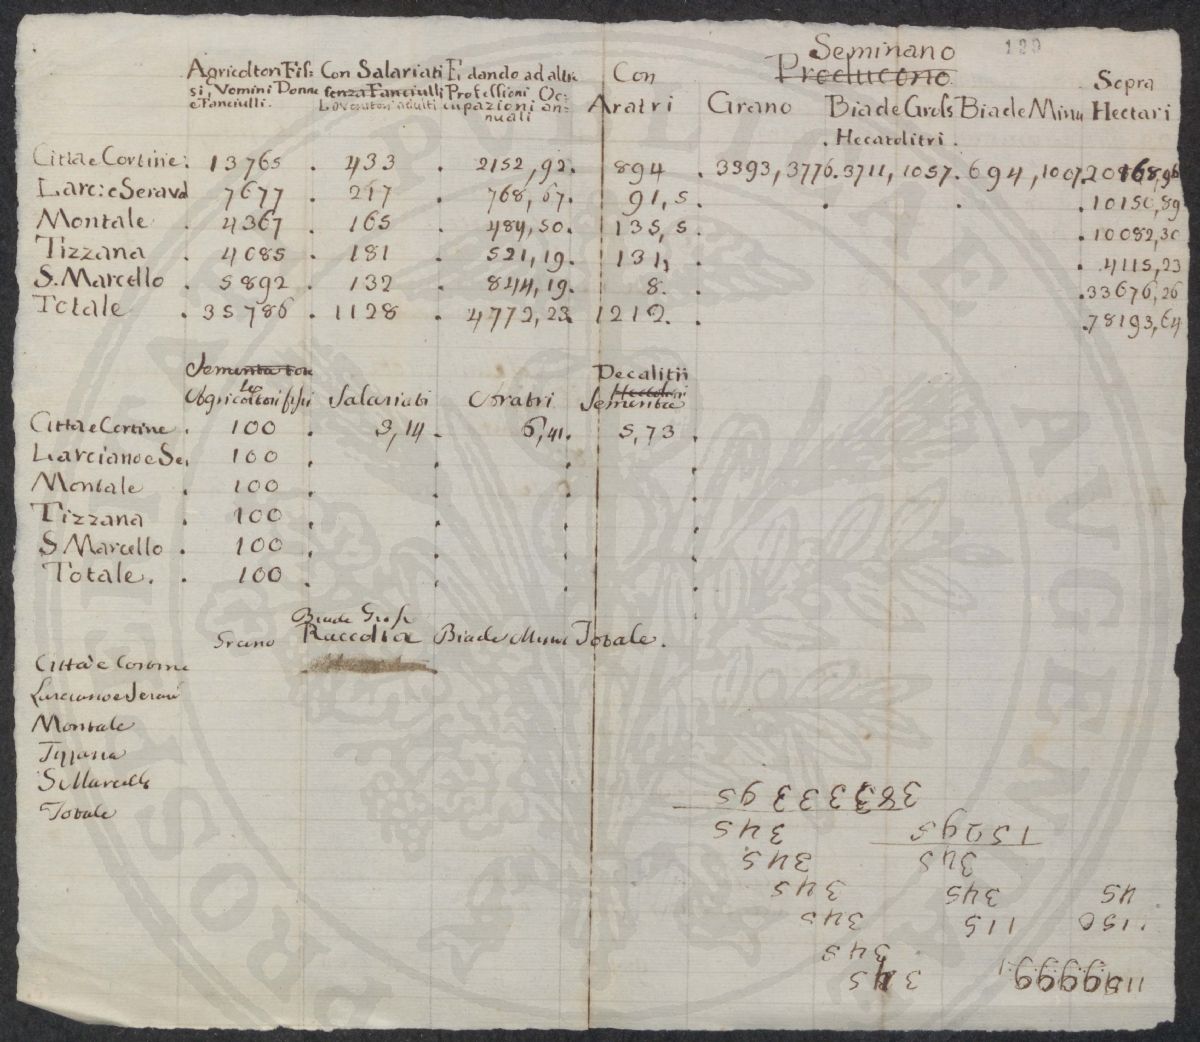 Seminano 120
Agricoltori Fis: Con Salariati E, dando ad altre Con Producono Sopra
si, Uomini Donne senza Fanciulli Professioni Oc: Aratri Grano Biade Gross Biade Minu Hectari
e Fanciulli. Lavoratori adulti cupazioni an= nuali . Hecatolitri .
Citta e Cortine . 13765 . 433 . 2152,92 . 894 . 3393,3776 . 3711,1057 . 694,1007
Larc: e Serava 7677 . 217 . 768,67 . 91,5 . . . 10150,89
Montale . 4367 . 165 . 484,50 . 135,5 . . 10082,30
Tizzana . 4085 . 181 . 521,19 . 131, . . 4115,23
S. Marcello . 5892 . 132 . 844,19 . 8 . . 33676,26
Totale . 35786 . 1128 . 4772,23 1212 . . 78193,64
Sementa con Decalitii
Agricoltori fissi Salariati Aratri Sementa
Citta e Cortine . 100 . 3,14 . 6,41 . 5,73 .
Larciano e Se. 100
Montale . 100
Tizzana . 100
S Marcello . 100
Totale . . 100
Biade Gross
Grano Raccolta Biade Minu Totale .
Citta e Cortine
Larciano e Serav
Montale
Tizzana
S. Marcello
Totale
38333395
345 15295
345 345
345 345 45
345 115 1150
345
345